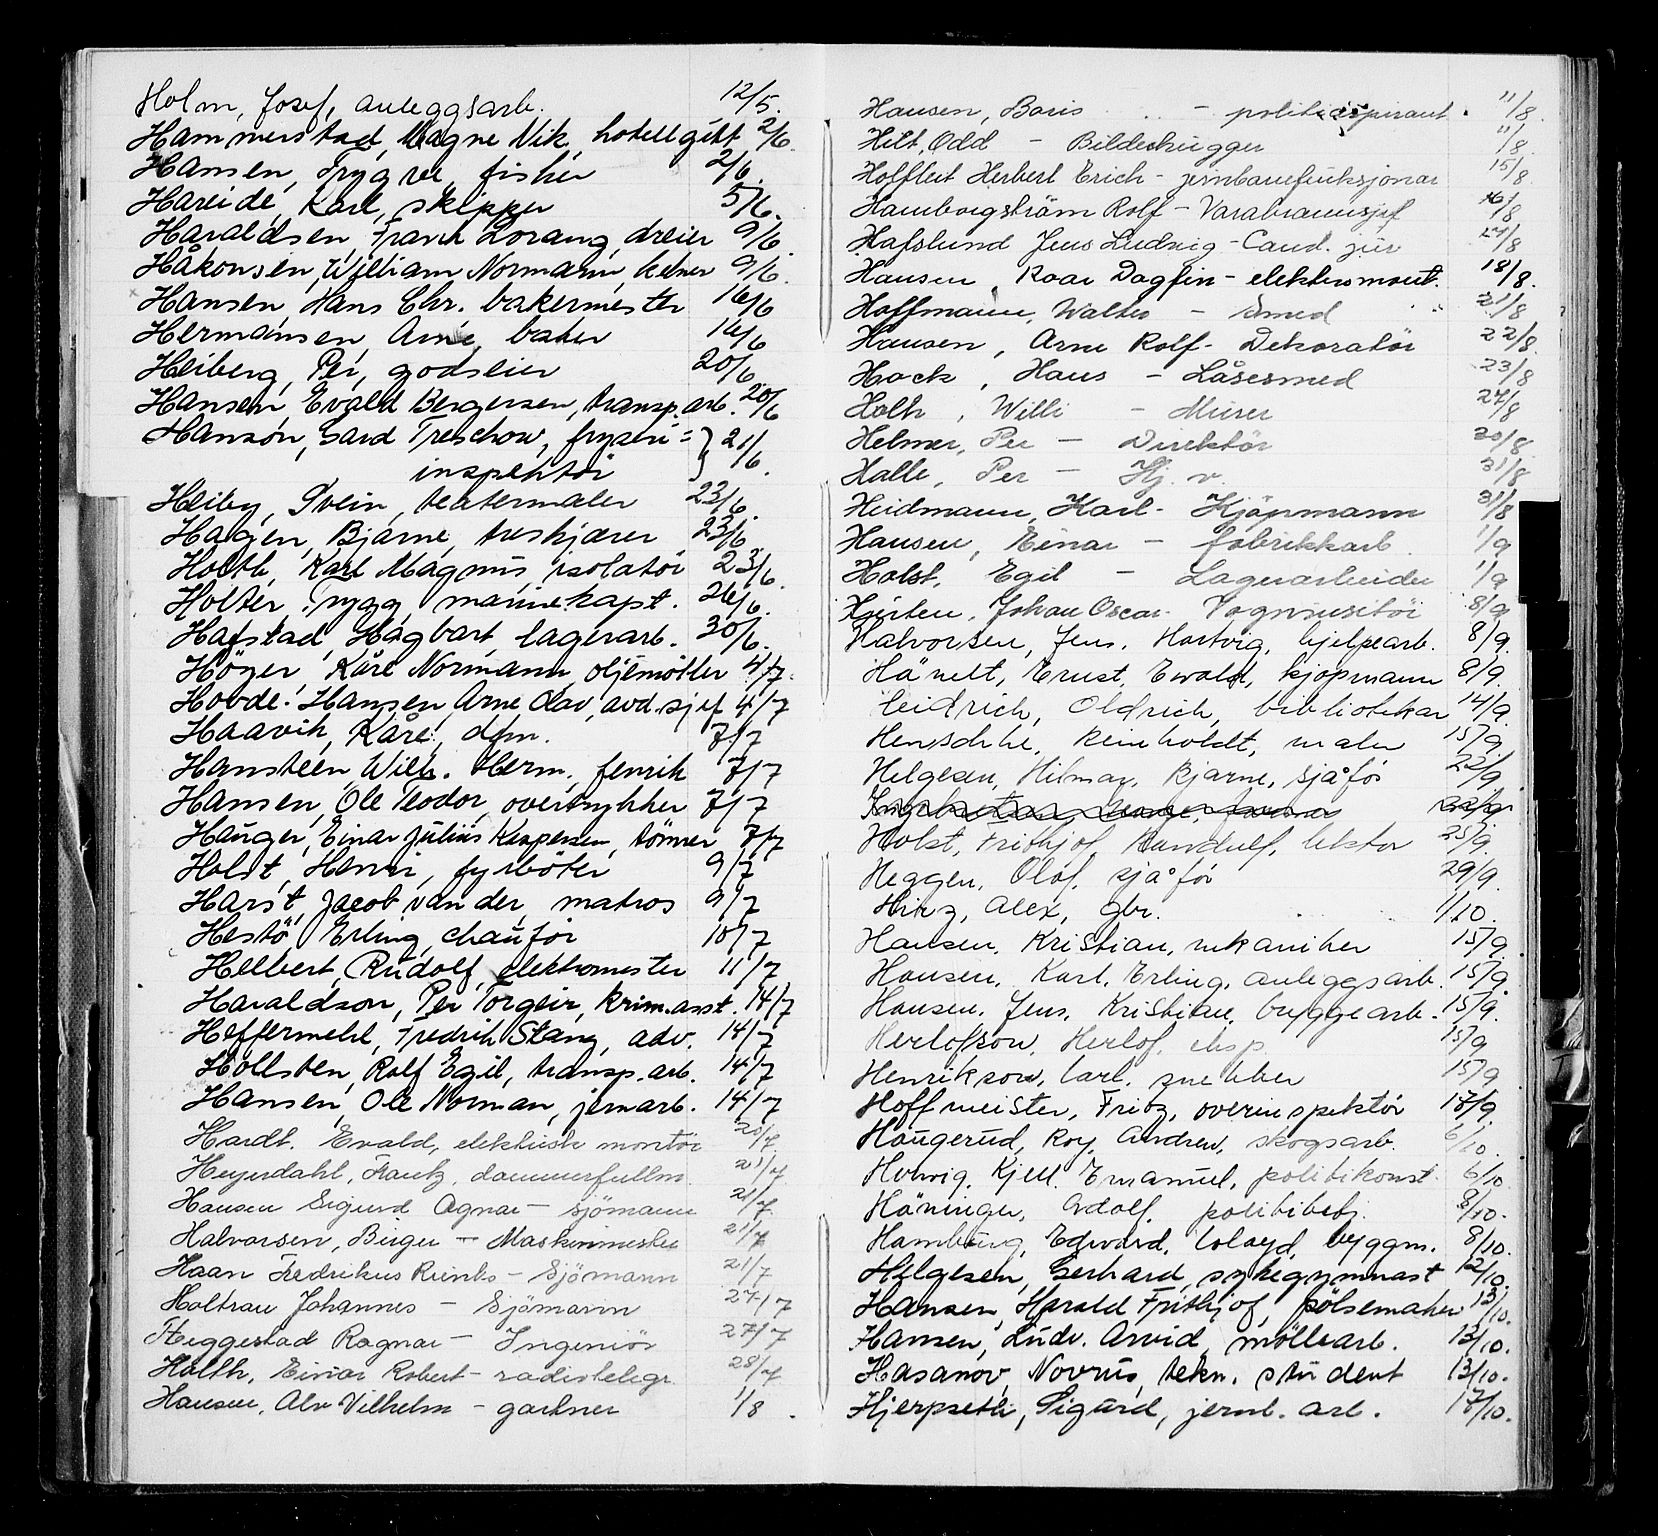 Holm, Josef, anleggsarb. 12/5.
Hammerstad, Magne Nik, hotellgutt 2/6.
Hansen, Trygve, fisker 2/6.
Hareide, Karl, skipper 5/6.
Haraldsen, Frank Lorang, dreier 9/6
Håkonsen, William Normann, kelner 9/6.
Hansen, Hans Chr. bakermester 16/6
Hermansen, Arne, baker 16/6
Heiberg, Per, godseier 20/6
Hansen, Evald Bergersen, transp.arb. 20/6
Hanson, Gard Treschow, fryseri= } 21/6.
inspektör
Heiby, Svein, teatermaler 23/6.
Hagen, Bjarne, treskjærer 23/6
Holth, Karl Magnus, isolatör 23/6.
Holter, Trygg, marinekapt. 26/6.
Hafstad, Hagbart, lagerarb. 30/6.
Höger, Kåre Normann, oljemöller 4/7.
Hovde-Hansen, Arne Olav, avd.sjef 4/7
Haavik, Kåre, dfm. 7/7
Hansteen, Wilh. Herm., fenrik 7/7
Hansen, Ole Teodor, overstykker 7/7
Hauger, Einar Julius Kaspersen, tömmer 7/7
Holst, Henri, fyrböter 9/7
Harst, Jacob van der, matros 9/7
Hestö, Erling, chauför 10/7
Helbert, Rudolf, elektromester 11/7
Haraldson, Per Torgeir, krim.asst. 14/7
Heffermehl, Fredrik Stang, adv. 14/7
Hollsten, Rolf Egil, transp.arb. 14/7
Hansen, Ole Norman, jernarb. 14/7
Hardt. Evald, elektrisk montör 20/7
Heyerdahl, Frantz, dommerfullm. 21/7
Hansen Sigurd Agnar – sjömann 21/7.
Halvorsen, Birger – Maskinmester 21/7
Haan Fredrikus Rienks – Sjömann 21/7
Holtrau Johannes – Sjömann 27/7
Heggestad Ragnar – Ingeniör 27/7
Holth, Einar Robert – radiotelegr. 28/7
Hansen, Alv Vilhelm – gartner 1/8.
Hansen, Boris – politiaspirant. 11/8.
Hilt, Odd – Billedhugger 11/8.
Holflert Herbert Erich – jernbanefunksjonær 15/8
Hamborgström Rolf – Varabrannsjef 16/8
Hafslund Jens Ludvig – Cand. jur 17/8
Hansen, Roar Dagfin – elektromont. 18/8.
Hoffmann, Walter – smed 21/8
Hansen, Arne Rolf – Dekoratör 22/8
Hock, Hans – Låsesmed 23/8
Holth, Willi – Murer 27/8
Helmer, Per – Direktör 30/8.
Halle, Per – Hj. v. 31/8
Heidmann, Karl – Kjöpmann 31/8
Hansen, Einar – fabrikkarb. 1/9
Holst, Egil – Lagerarbeider 1/9
Hjerten, Johan Oscar – Vognvisitör 8/9
Halvorsen, Jens, Hartvig, hjelpearb. 8/9.
Hänelt, Ernst, Ewald, kjöpmann 8/9.
Heidrich, Oldrich, bibliotekar 14/9.
Henschke, Reinholdt, maler 15/9.
Helgesen, Hilmar, Bjarne, sjåför 22/9.
Holst, Frithjof, Randulf, lektor 25/9.
Heggen, Olaf, sjåför 29/9.
Hirz, Alex, gbr. 1/10.
Hansen, Kristian, mekaniker 15/9.
Hansen, Karl, Erling, anleggsarb. 15/9.
Hansen, Jens, Kristian, byggearb. 15/9.
Herlofson, Herlof, eksp. 15/9
Henrikson, Carl, snekker 15/9
Hoffmeister, Fritz, overinspektör 17/9.
Haugerud, Roy, Andrew, skogsarb. 6/10.
Helwig, Kjell, Emanuel, politikonst. 6/10
Häninger, Adolf, politibetj. 8/10.
Hamburg, Edward, Lloyd, byggm. 8/10.
Helgesen, Gerhard, sykegymnast 12/10.
Hansen, Harald Frithjof, pölsemaker 13/10.
Hansen, Ludv. Arvid, möllearb. 13/10.
Hasanov, Novrus, tekn. student 13/10.
Hjerpseth, Sigurd, jernb. arb. 17/10.